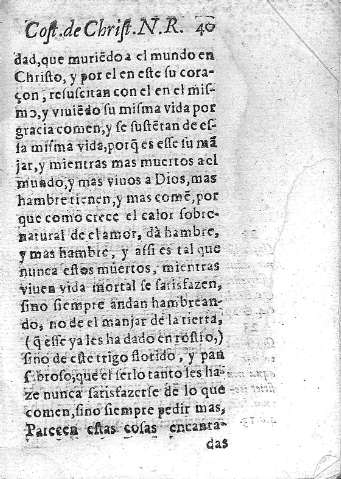 Cost. de Christ. N. R. 40
dad, que muriẽdo a el mundo en
Christo, y por el en este su cora-
çon, resuscitan con el en el mis-
mo, y viuiẽdo su misma vida por
gracia comen, y se sustẽtan de es-
sa misma vida, porq̃ es esse su mã
jar, y mientras mas muertos a el
mundo, y mas viuos a Dios, mas
hambre tienen, y mas comẽ, por
que como crece el calor sobre-
natural de el amor, dà hambre,
y mas hambre, y assi es tal que
nunca estos muertos, mientras
viuen vida mortal se satisfazen,
sino siempre andan hambrean-
do, no de el manjar de la tierra,
(q̃ esse ya les ha dado en rostro,)
sino de este trigo florido, y pan
sabroso, que el serlo tanto les ha-
ze nunca satisfazerse de lo que
comen, sino siempre pedir mas,
Parecen estas cosas encanta-
das